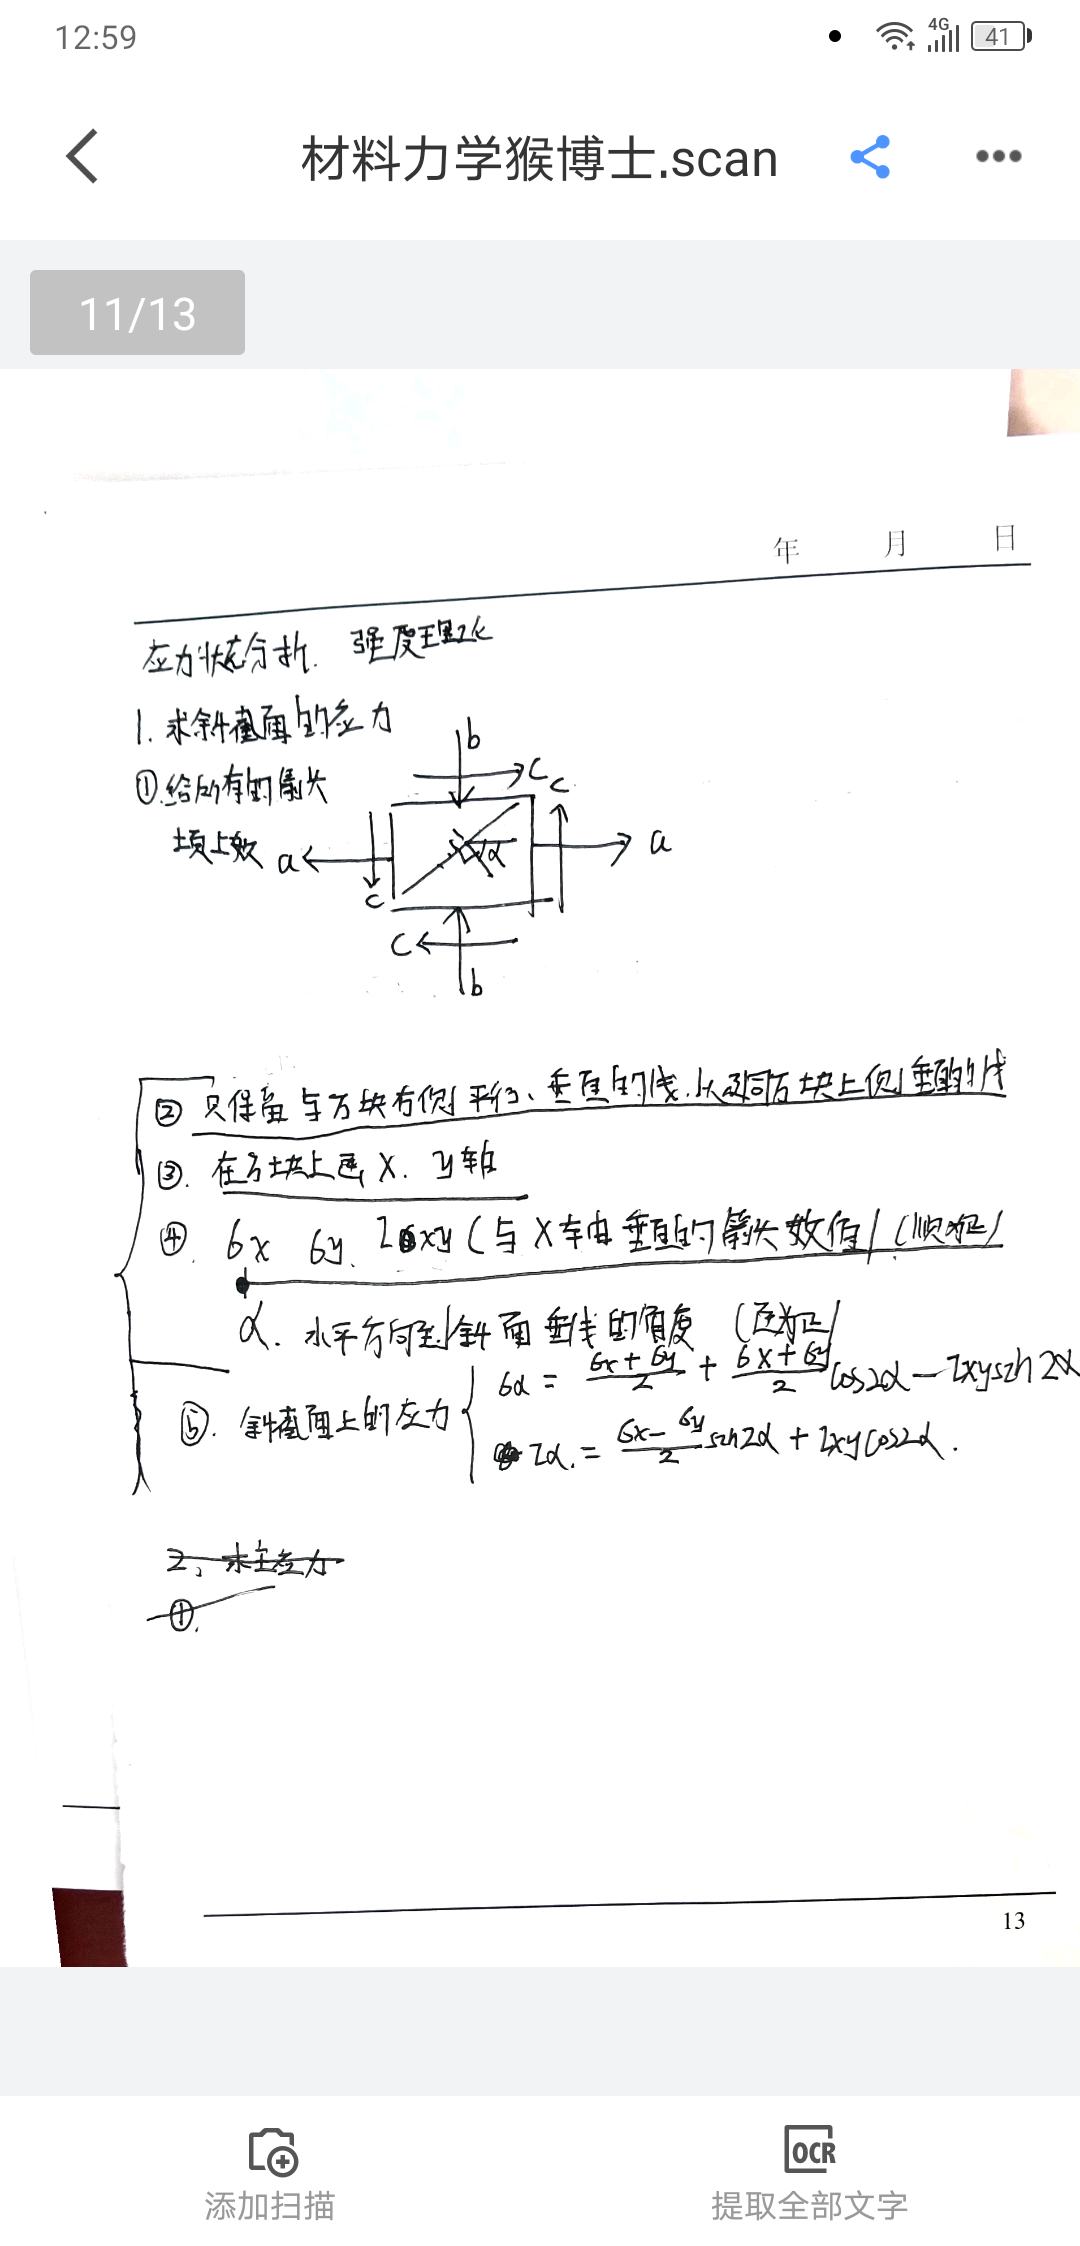 12:59
4G
41
材料力学猴博士.scan
11/13
年 月 日
应力状态分析. 强度理论
1. 求斜截面的应力
①.给所有的箭头
填上数
b
c
c
a
a
α
c
c
b
② 只保留与方块右侧平行、垂直的线.以及同方块上侧垂直的线
③. 在方块上画 x. y轴
④. 6x 6y. τxy (与X轴垂直的箭头数值) (顺为正)
α. 水平方向到斜面垂线的角度 (逆为正)
⑤. 斜截面上的应力
6α = 6x+6y/2 + 6x+6y/2 cos2α - τxysin2α
τα. = 6x-6y/2 sin2α + τxycos2α.
2、求主应力
①.
13
添加扫描
OCR
提取全部文字